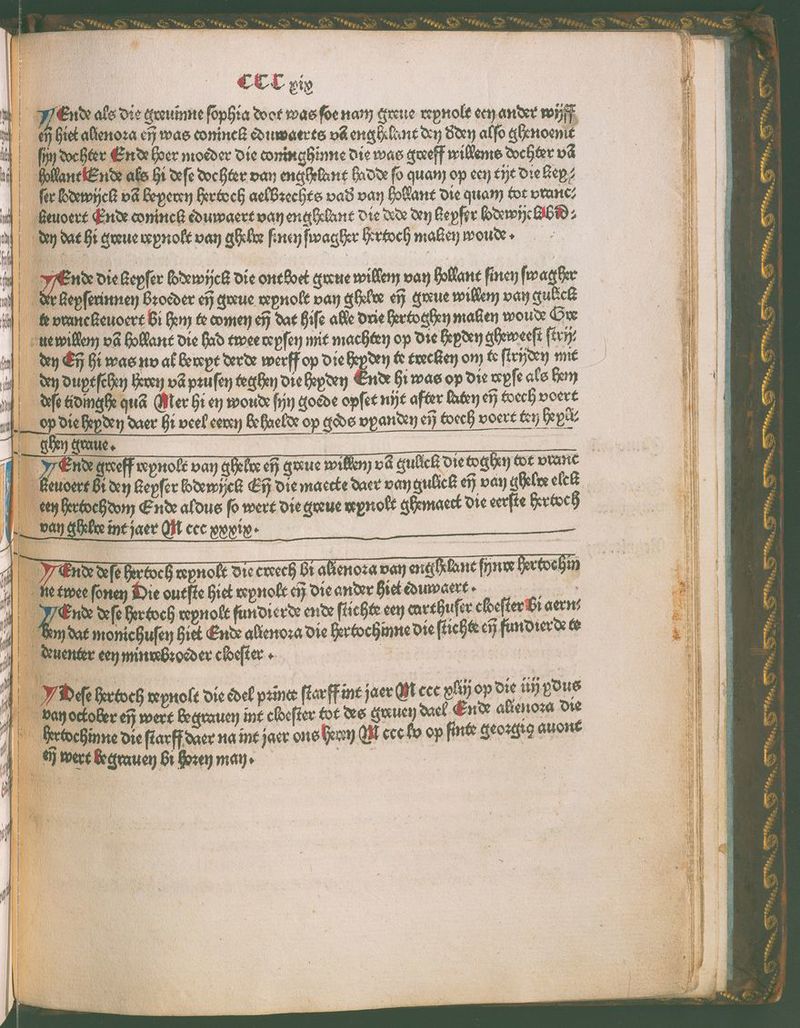 CCC xix
Ende als die greuinne sophia doot was soe nam greue reynolt een ander wijff
eñ hiet alienora eñ was coninck eduwaerts vã enghelant den dden also ghenoemt
sijn dochter Ende hoer moeder die coninghinne die was greeff willems dochter vã
hollant Ende als hi dese dochter van enghelant hadde so quam op een tijt die key⸗
ser lodewijck vã beyeren hertoch aelbrechts vad van hollant die quam tot vranc⸗
keuoert Ende coninck eduwaert van enghelant die dede den keyser lodewijck bid⸗
den dat hi greue reynolt van ghelre sinen swagher hertoch maken woude .
Ende die keyser lodewijck die ontboet greue willem van hollant sinen swagher
der keyserinnen broeder eñ greue reynolt van ghelre eñ greue willem van gulick
te vranckeuoert bi hem te comen eñ dat hise alle drie hertoghen maken woude Gre
ue willem vã hollant die had twee reysen mit machten op die heyden gheweest strij⸗
den Eñ hi was nv al bereyt derde werff op die heyden te trecken om te strijden mit
den duytschen heren vã prusen teghen die heyden Ende hi was op die reyse als hem
dese tidinghe quã Mer hi en woude sijn goede opset nijt after laten eñ toech voert
op die heyden daer hi veel eeren behaelde op gods vyanden eñ toech voert ten heyli⸗
ghen graue.
Ende greeff reynolt van ghelre eñ greue willem vã gulick die toghen tot vranc
keuoert bi den keyser lodewijck Eñ die maecte daer van gulick eñ van ghelre elck
een hertochdom Ende aldus so wert die greue reynolt ghemaect die eerste hertoch
van ghelre int jaer M ccc xxxix.
Ende dese hertoch reynolt die creech bi alienora van enghelant sijnre hertochin
ne twee sonen Die outste hiet reynolt eñ die ander hiet eduwaert .
Ende dese hertoch reynolt fundierde ende stichte een carthuser cloester bi aern⸗
hem dat monichusen hiet Ende alienora die hertochinne die stichte eñ fundierde te
deuenter een minrebroeder cloester .
Dese hertoch reynolt die edel prince starff int jaer M ccc xliij op die iiij ydus
van october eñ wert begrauen int cloester tot des greuen dael Ende alienora die
hertochinne die starff daer na int jaer ons heren M ccc lv op sinte georgiꝯ auont
eñ wert begrauen bi horen man.